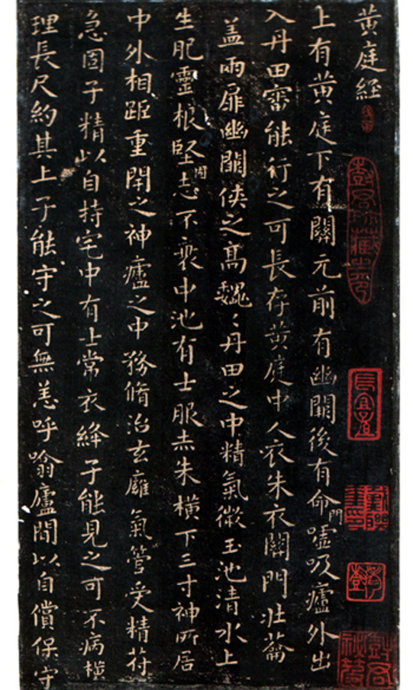 黄庭経
上有黄庭下有關元前有幽闕後有命門噓吸廬外出
入丹田審能行之可長存黄庭中人衣朱衣關門壯蘥
蓋兩扉幽闕俠之高巍〻丹田之中精氣微玉池清水上
生肥靈根堅志不衰中池有士服赤朱横下三寸神所居
中外相距重閇之神廬之中務脩治玄廱氣管受精符
急固子精以自持宅中有士常衣絳子能見之可不病横
理長尺約其上子能守之可無恙呼噏廬間以自償保守